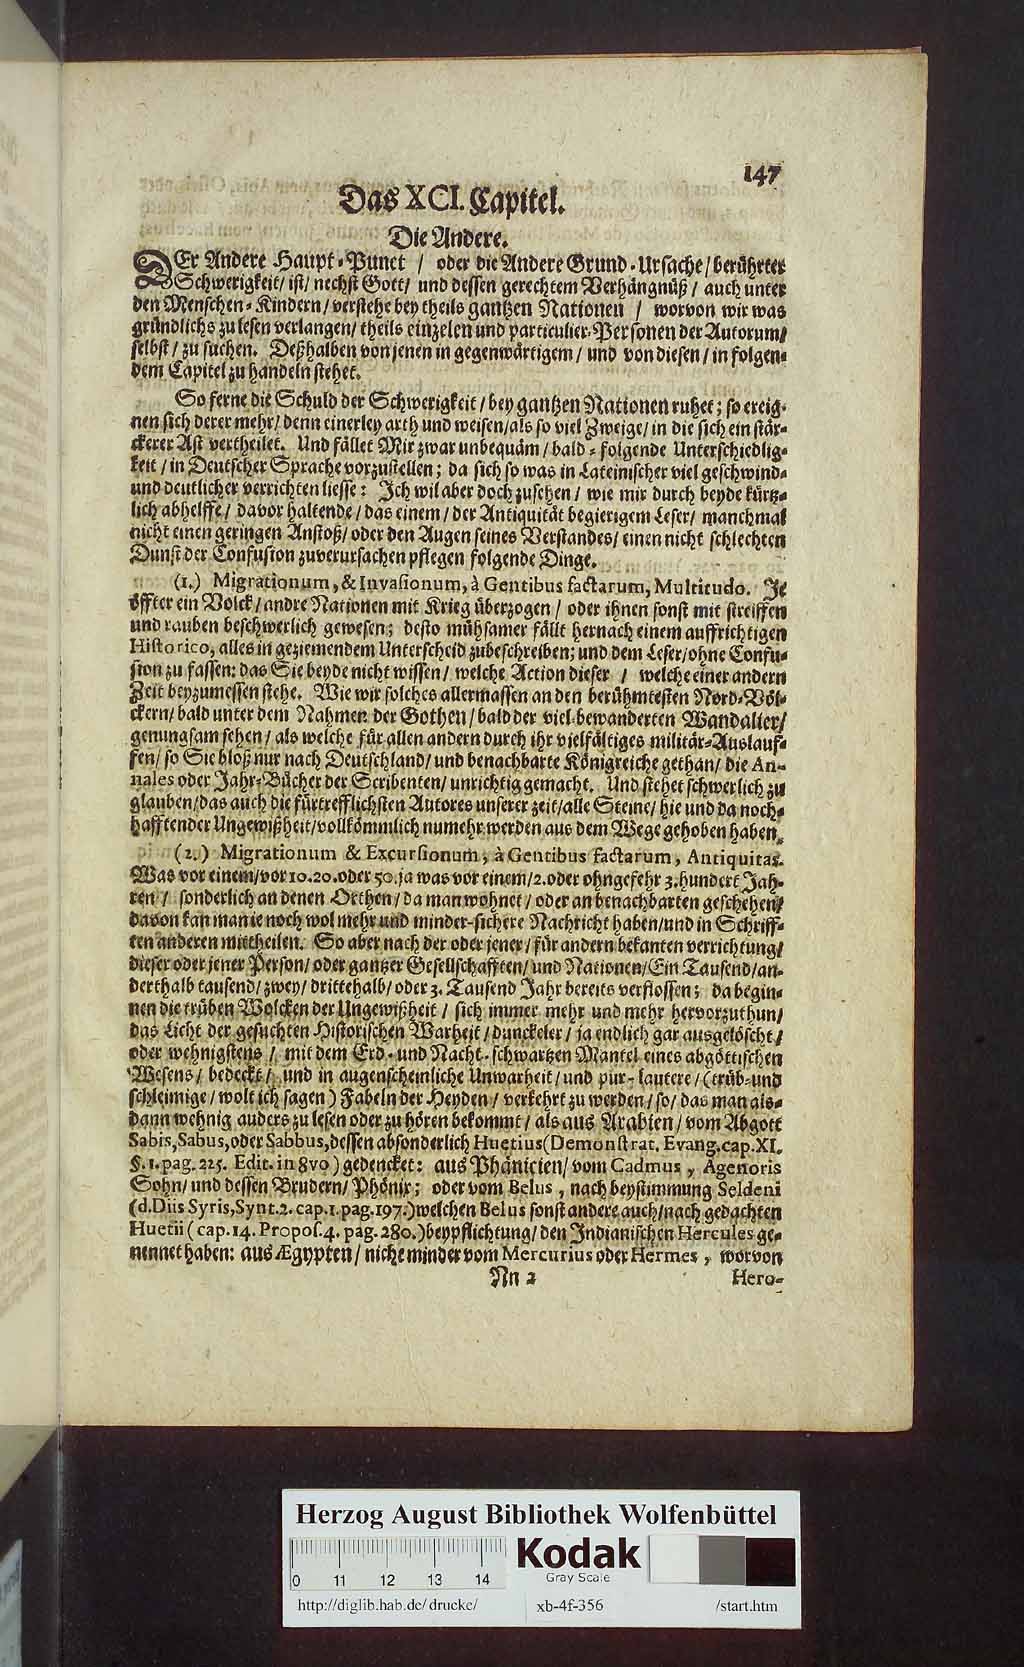 147
Das XCI. Capitel.
Die Andere.
DEr Andere Haupt-Punct / oder die Andere Grund-Ursache / berührter
Schwerigkeit / ist / nechst Gott / und dessen gerechtem Verhängnüß / auch unter
den Menschen-Kindern / verstehe bey theils gantzen Nationen / worvon wir was
gründlichs zu lesen verlangen / theils einzelen und particulier-Personen der Autorum /
selbst / zu suchen. Deßhalben von jenen in gegenwärtigem / und von diesen / in folgen-
dem Capitel zu handeln stehet.
So ferne die Schuld der Schwerigkeit / bey gantzen Nationen ruhet; so ereig-
nen sich derer mehr / denn einerley arth und weisen / als so viel Zweige / in die sich ein stär-
ckerer Ast vertheilet. Und fället Mir zwar unbequäm / bald-folgende Unterschiedlig-
keit / in Deutscher Sprache vorzustellen; da sich so was in Lateinischer viel geschwind-
und deutlicher verrichten liesse: Ich wil aber doch zusehen / wie mir durch beyde kürtz-
lich abhelffe / davor haltende / das einem / der Antiquität begierigem Leser / manchmal
nicht einen geringen Anstoß / oder den Augen seines Verstandes / einen nicht schlechten
Dunst der Confusion zuverursachen pflegen folgende Dinge.
(1.) Migrationum, & Invasionum, à Gentibus factarum, Multitudo. Je
öffter ein Volck / andre Nationen mit Krieg überzogen / oder ihnen sonst mit streiffen
und rauben beschwerlich gewesen; desto mühsamer fällt hernach einem auffrichtigen
Historico, alles in geziemendem Unterscheid zubeschreiben; und dem Leser / ohne Confu-
sion zu fassen: das Sie beyde nicht wissen / welche Action dieser / welche einer andern
Zeit beyzumessen stehe. Wie wir solches allermassen an den berühmtesten Nord-Völ-
ckern / bald unter dem Nahmen der Gothen / bald der viel-bewanderten Wandalier /
genungsam sehen / als welche für allen andern durch ihr vielfältiges militär-Auslauf-
fen / so Sie bloß nur nach Deutschland / und benachbarte Königreiche gethan / die An-
nales oder Jahr-Bücher der Scribenten / unrichtig gemacht. Und stehet schwerlich zu
glauben / das auch die fürtrefflichsten Autores unserer zeit / alle Steine / hie und da noch-
hafftender Ungewißheit / vollkömmlich numehr werden aus dem Wege gehoben haben.
(2.) Migrationum & Excursionum, à Gentibus factarum, Antiquitas.
Was vor einem / vor 10. 20. oder 50. ja was vor einem / 2. oder ohngefehr 3. hundert Jah-
ren / sonderlich an denen Orthen / da man wohnet / oder an benachbarten geschehen /
davon kan man ie noch wol mehr und minder-sichere Nachricht haben / und in Schriff-
ten anderen mittheilen. So aber nach der oder jener / für andern bekanten verrichtung /
dieser oder jener Person / oder gantzer Gesellschafften / und Nationen / Ein Tausend / an-
derthalb tausend / zwey / drittehalb / oder 3. Tausend Jahr bereits verflossen; da begin-
nen die trüben Wolcken der Ungewißheit / sich immer mehr und mehr hervorzuthun /
das Licht der gesuchten Historischen Warheit / dunckeler / ja endlich gar ausgelöscht /
oder wehnigstens / mit dem Erd- und Nacht-schwartzen Mantel eines abgöttischen
Wesens / bedeckt / und in augenscheinliche Unwarheit / und pur-lautere / (trüb- und
schleimige / wolt ich sagen) Fabeln der Heyden / verkehrt zu werden / so / das man als-
dann wehnig anders zu lesen oder zu hören bekommt / als aus Arabien / vom Abgott
Sabis, Sabus, oder Sabbus, dessen absonderlich Huetius (Demonstrat. Evang. cap. XI.
§. 1. pag. 225. Edit. in 8vo) gedencket: aus Phänicien / vom Cadmus, Agenoris
Sohn / und dessen Brudern / Phönix; oder vom Belus, nach beystimmung Seldeni
(d. Diis Syris, Synt. 2. cap. 1. pag. 197.) welchen Belus sonst andere auch / nach gedachten
Huetii (cap. 14. Propos. 4. pag. 280.) beypflichtung / den Indianischen Hercules ge-
nennet haben: aus Ægypten / nicht minder vom Mercurius oder Hermes, worvon
Nn 2 Hero-
Herzog August Bibliothek Wolfenbüttel
0 11 12 13 14
Kodak
Gray Scale
http://diglib.hab.de/drucke/ xb-4f-356 /start.htm